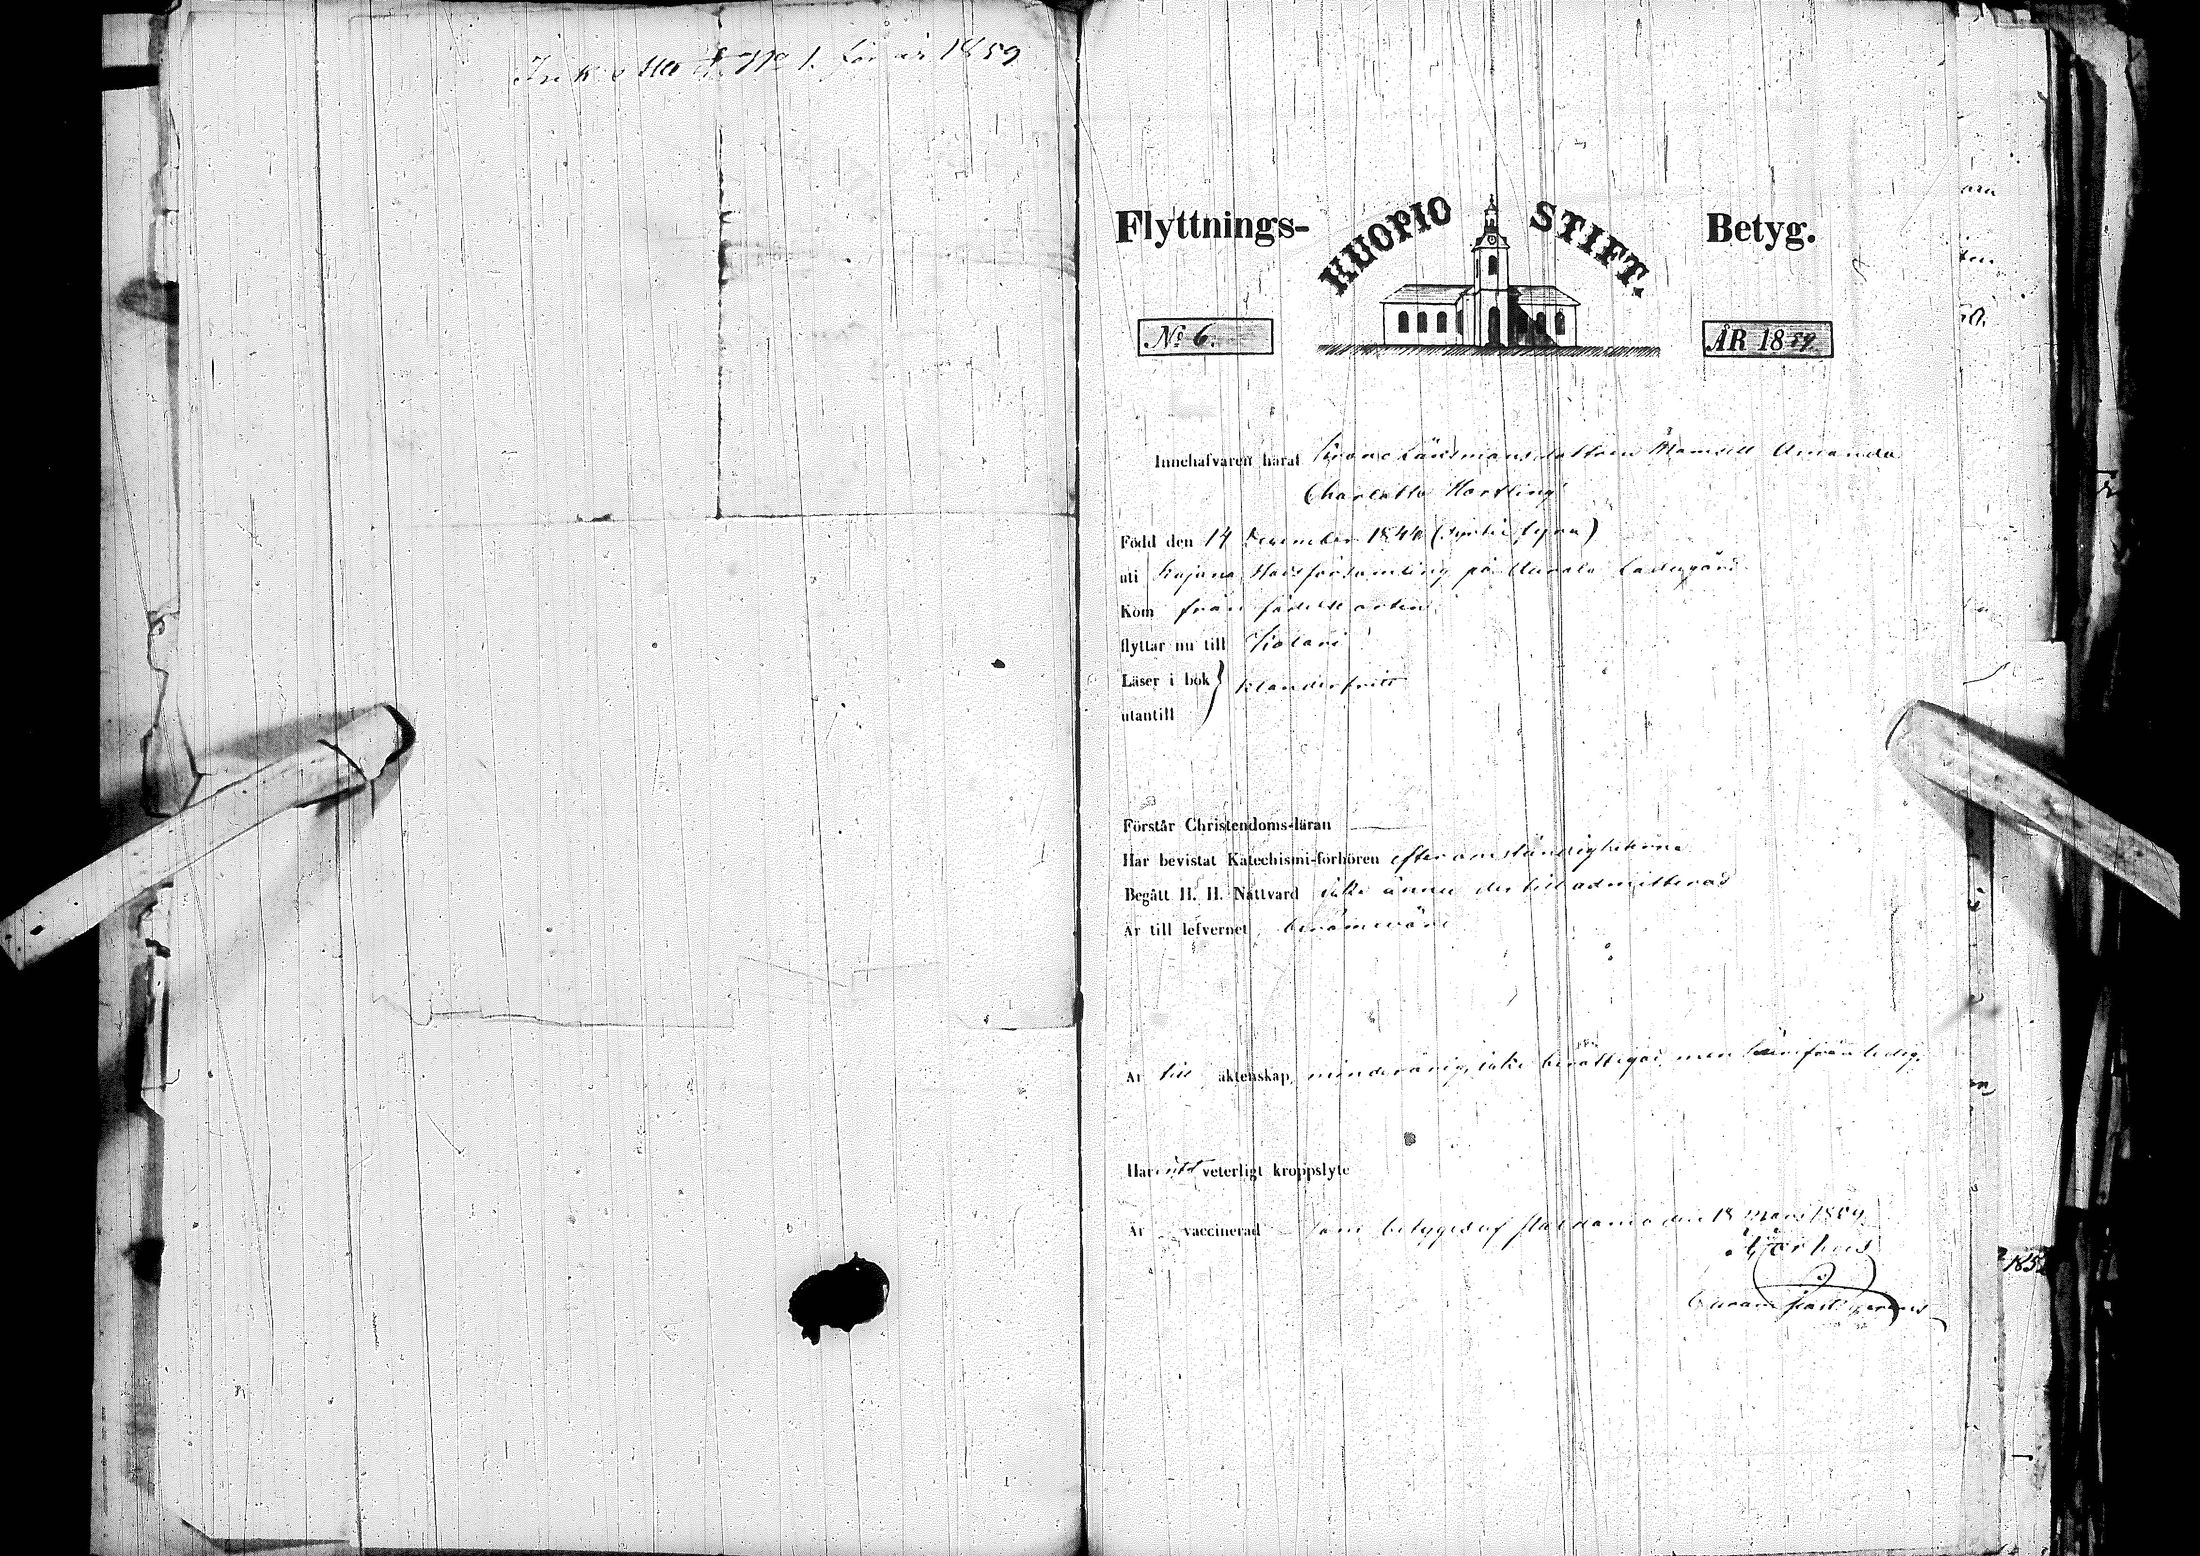 No 1. för år 1859
Flyttnings- KUOPIO STIFT. Betyg.
No 6. ÅR 1859.
Innehafvaren häraf Krono Länsmansdottren Mamsell Amanda
Charlotta Hortling
Född den 14 December 1844 (fyratiofyra)
uti Kajana Landsförsamling på
Kom från födelseorten
flyttar nu till Kolari
Läser i bok } klanderfritt
utantill
Förstår Christendoms-läran
Har bevistat Katechismi-förhören efter omständigheterna
Begått H. H. Nattvard icke ännu dertill admitterad
Är till lefvernet berömvärd
Är till äktenskap, minderårig, icke berättigad, men härifrån ledig.
Har intet veterligt kroppslyte
Är vaccinerad som betygas af Paldamo den 18 Mars 1859